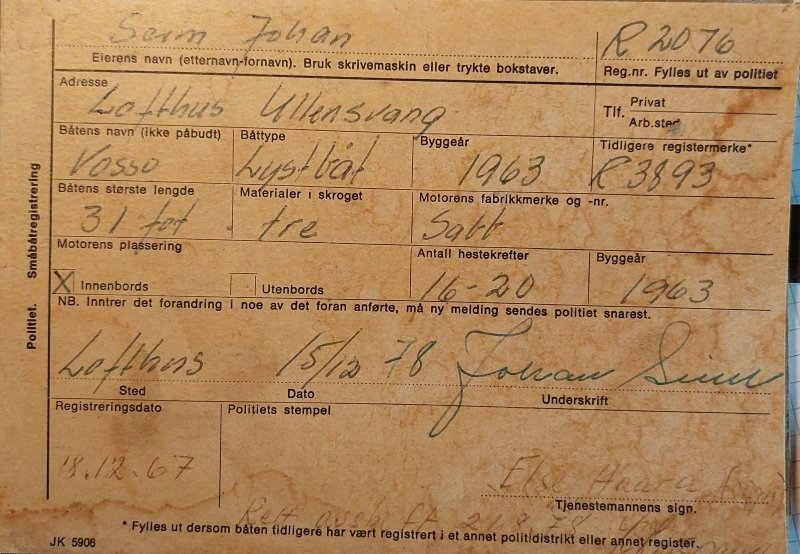 Johan
R 2076
Eierens navn (etternavn-fornavn). Bruk skrivemaskin eller trykte bokstaver.
Reg.nr. Fylles ut av politiet
Adresse
Lofthus Ullensvang
Tlf. Privat
Arb.sted
Båtens navn (ikke påbudt) Båttype Byggeår Tidligere registermerke*
Vosso Lystbåt 1963 R 3893
Båtens største lengde Materialer i skroget Motorens fabrikkmerke og -nr.
31 fot tre Sabb
Motorens plassering Antall hestekrefter Byggeår
X Innenbords Utenbords 16-20 1963
NB. Inntrer det forandring i noe av det foran anførte, må ny melding sendes politiet snarest.
Lofthus 15/12 78 Johan
Sted Dato Underskrift
Registreringsdato Politiets stempel
18.12.67
Else
Tjenestemannens sign.
21.8.78
* Fylles ut dersom båten tidligere har vært registrert i et annet politidistrikt eller annet register.
JK 5906
Politiet. Småbåtregistrering